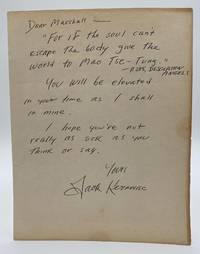 Dear Marshall —
"For if the soul can't
escape the body give the
world to Mao Tse-Tung."
— p.135, Desolation
Angels
You will be elevated
in your time as I shall
in mine.
I hope you're not
really as sick as you
think or say.
Yours
Jack Kerouac